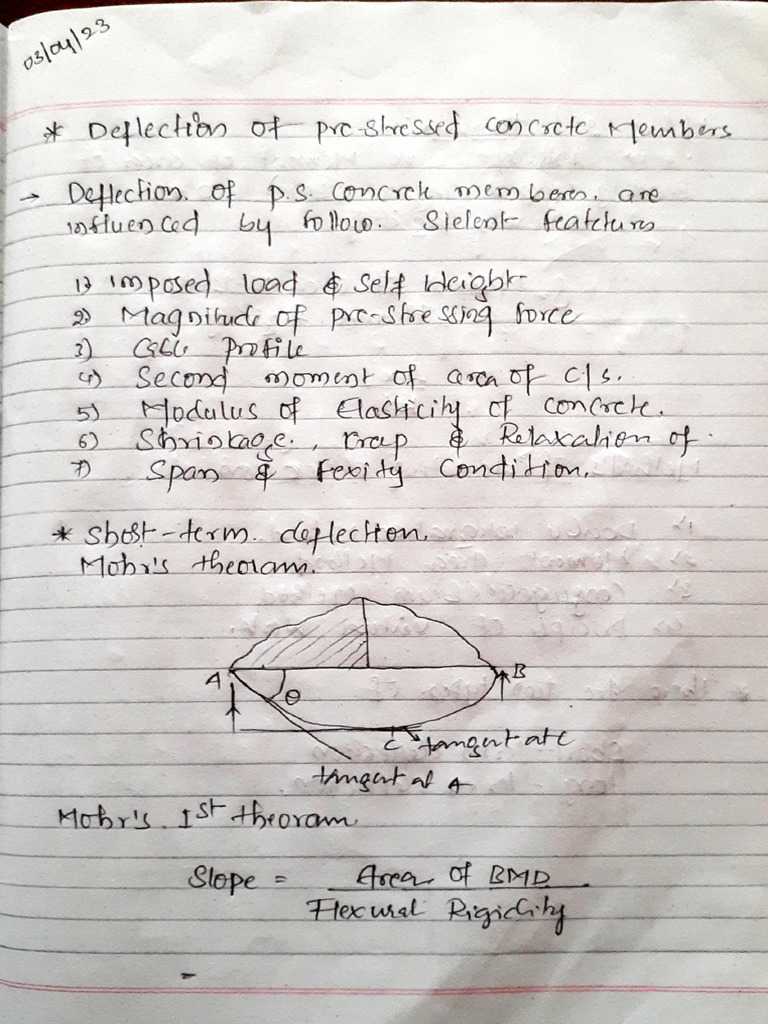 03/04/23
* Deflection of pre-stressed concrete Members
→ Deflection. of p.s. Concrete members. are
influenced by follow. Sielent features
1) imposed load & Self Weight
2) Magnitude of pre-stressing force
3) Cable Profile
4) Second moment of area of c/s.
5) Modulus of Elasticity of concrete.
6) Shrinkage., creep & Relaxation of.
7) Span & Fexity Condition.
* Short-term. deflection.
Mohr's theoram.
A B
θ
C tangent at c
tangent at A
Mohr's. 1st theoram
Slope = Area of BMD
Flexural Rigidity